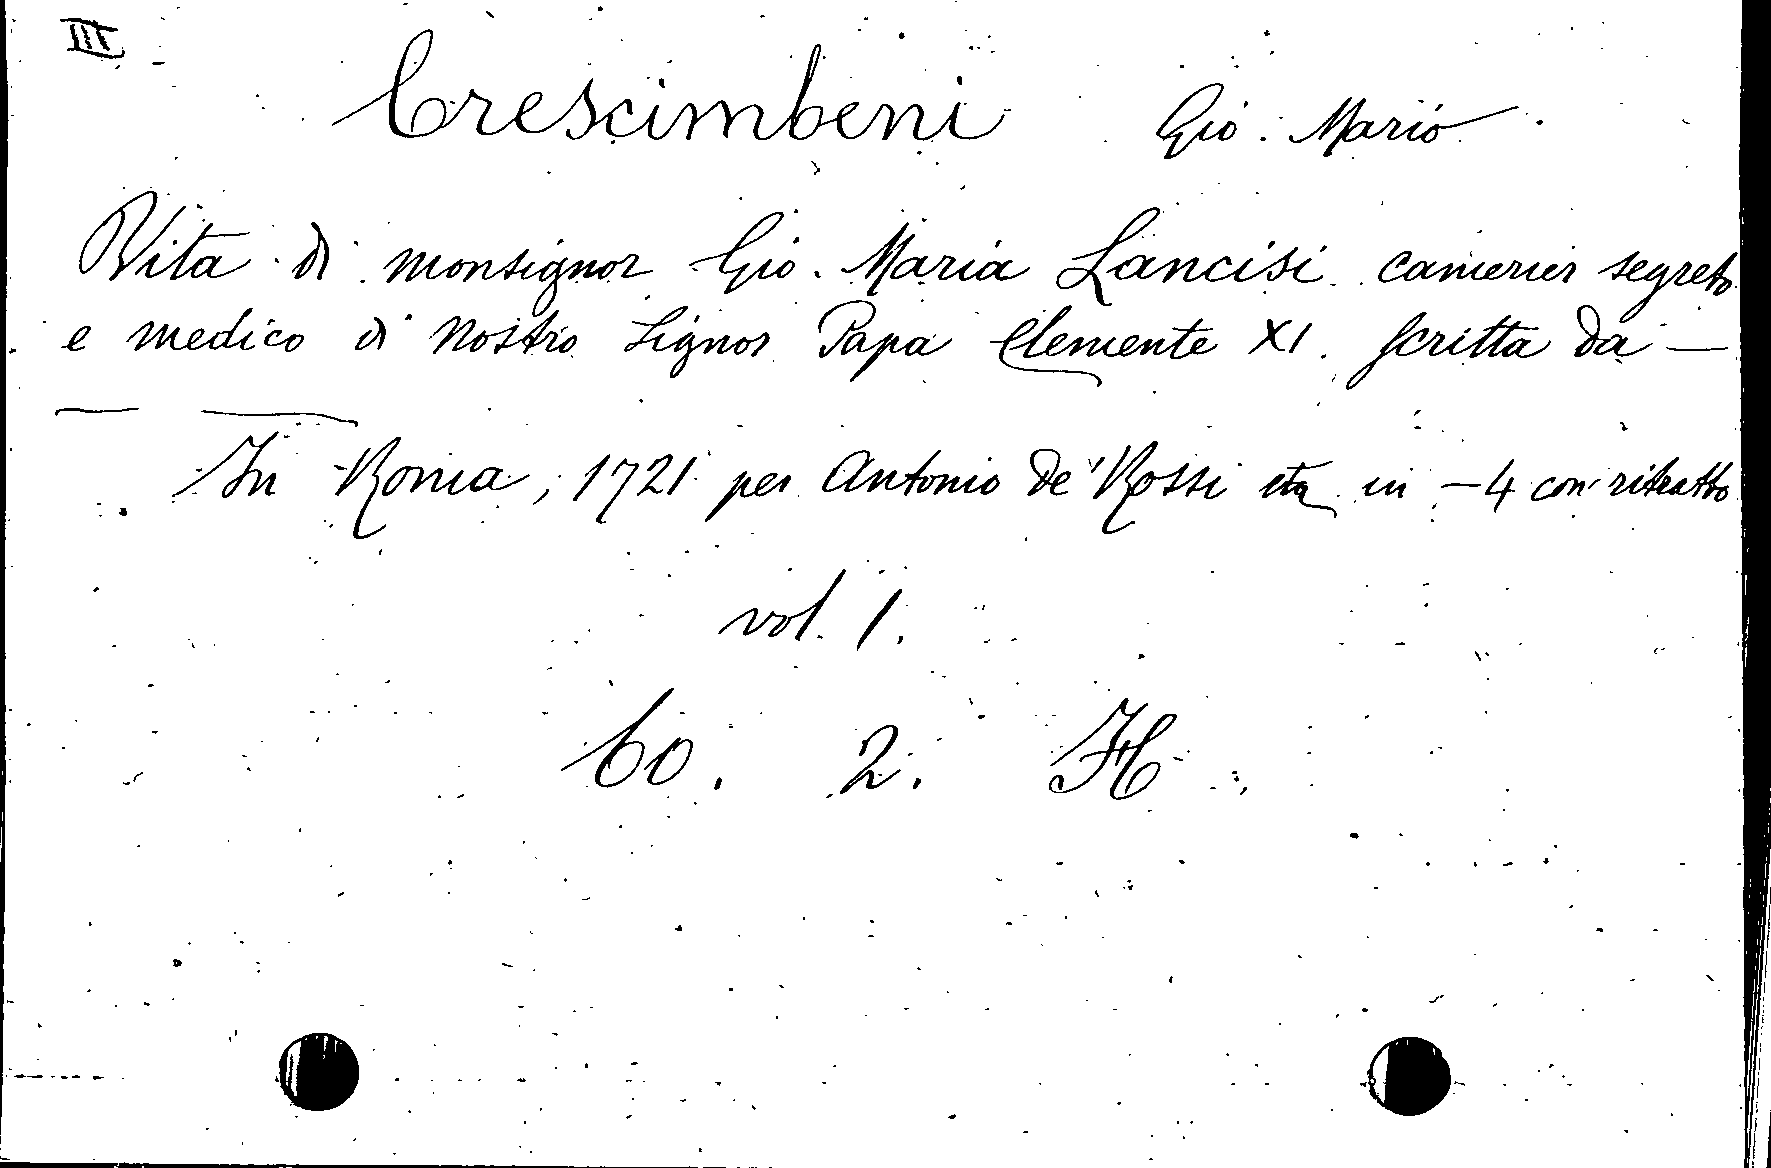 III
Crescimbeni Gio. Mario
Vita di monsignor Gio. Maria Lancisi camerier segreto
e medico di Nostro Signor Papa Clemente XI. scritta da —
— —
In Roma, 1721 per Antonio de' Rossi in -4 con ritratto
vol. 1.
60. 2. H